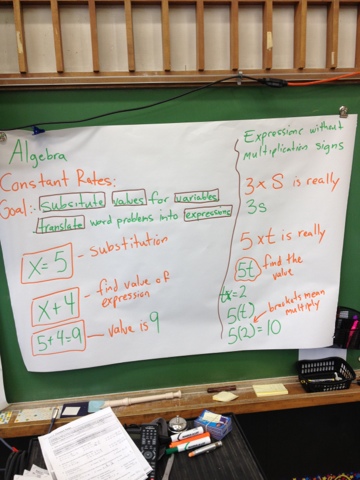 Algebra
Constant Rates:
Goal:- Subsitute values for variables
translate word problems into expressions
x=5 - substitution
x+4 - find value of
expression
5+4=9 - value is 9
Expressions without
multiplication signs
3 x S is really
3s
5 x t is really
5t find the
value
t = 2
5(t) brackets mean
multiply
5(2) = 10